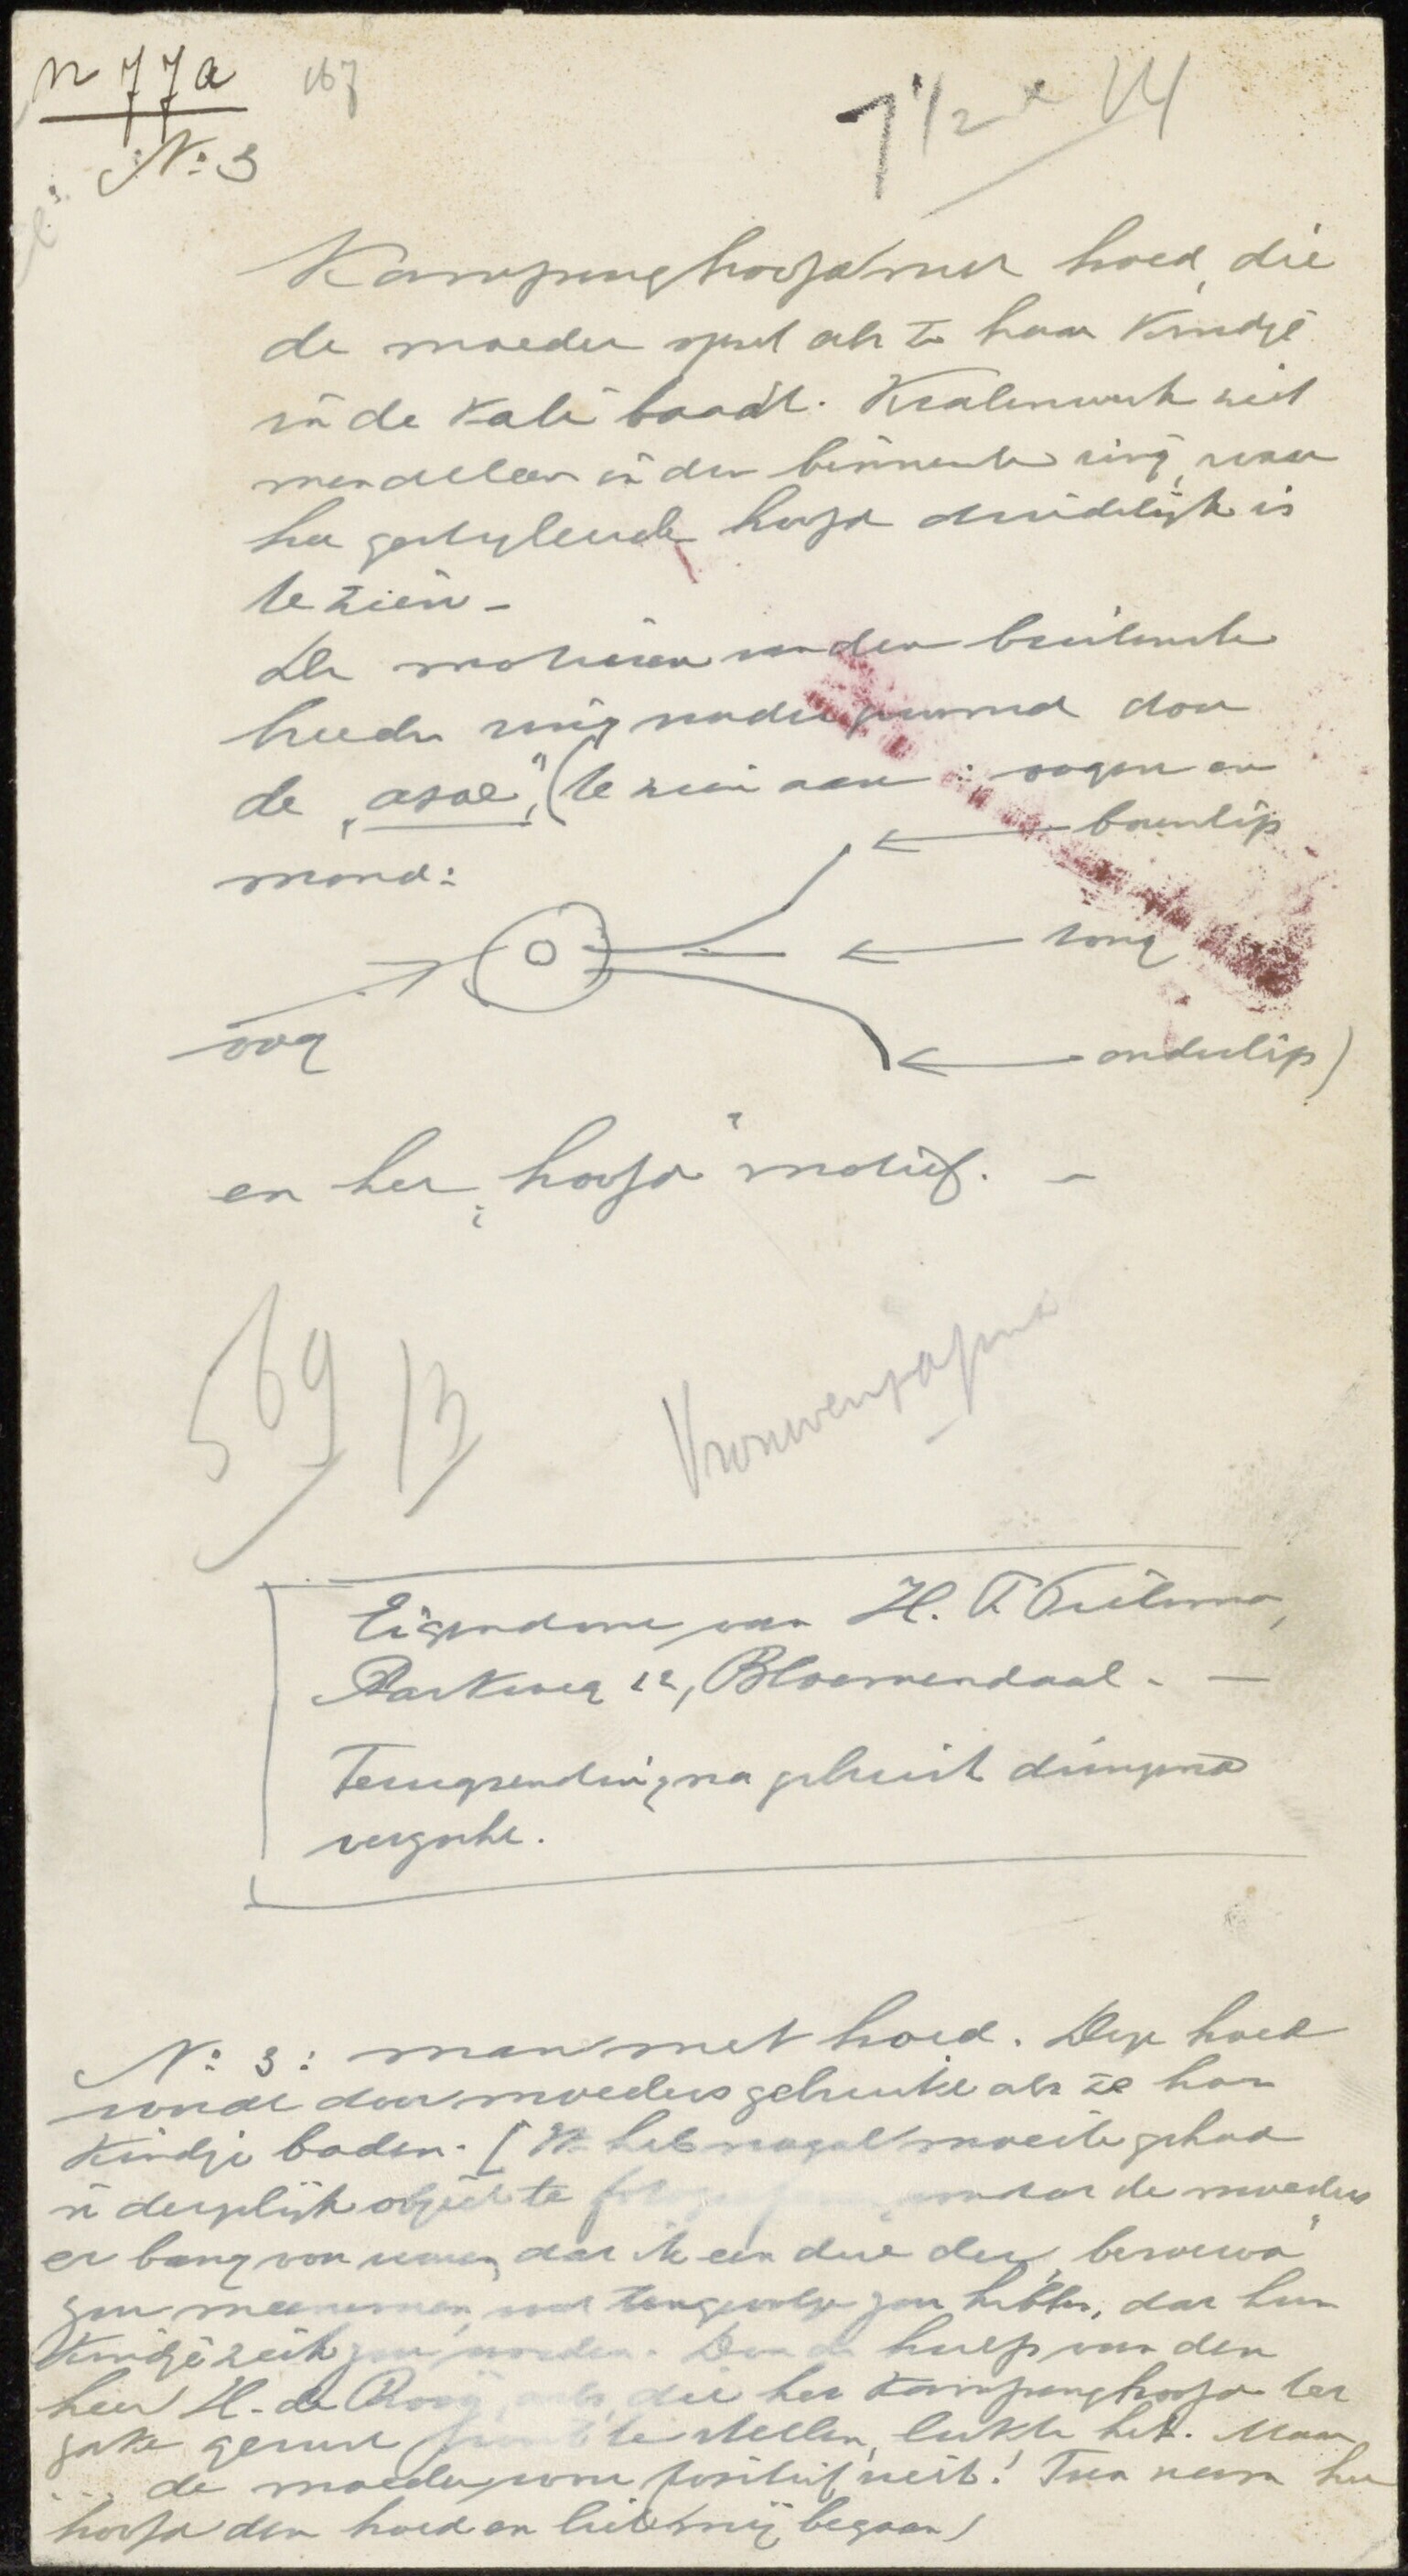 n 77a 167
7 1/2 x 14
N: 3
Kamponghoofd met hoed, die
de moeder opzet als ze haar kindje
in de kali baadt. Kralenwerk met
mandelleer in den binnenste ring, waar
het gestyleerde hoofd duidelijk is
te zien -
De motieven van den buitenste
breede ring worden gevormd door
de "asoe", (te zien aan: oogen en
mond:
bovenlip
tong
oog
onderlip)
en het "hoofd" motief. -
569 13
Vrouwen
Eigendom van H. F. Tillema,
Parkweg 22, Bloemendaal. -
Terugzending na gebruik dringend
verzocht.
N: 3: man met hoed. Deze hoed
wordt door moeders gebruikt als ze haar
kindje baden. [Ik heb nogal moeite gehad
'n dergelijk object te fotografeeren, omdat de moeders
er bang voor waren, dat ik een deel der "beroewa"
zou meenemen, wat tengevolge zou hebben, dat hun
kindje ziek zou worden. Door de hulp van den
heer H. de Rooy, die het kamponghoofd ter
zake gerust te stellen, lukte het. Maar
... de moeder wou positief niet! Toen nam het
hoofd den hoed en liet mij begaan)